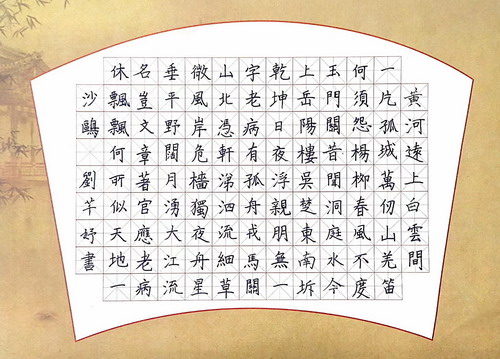 黃河遠上白雲間
一片孤城萬仞山羌笛
何須怨楊柳春風不度
玉門關昔聞洞庭水今
上岳陽樓吳楚東南坼
乾坤日夜浮親朋無一
字老病有孤舟戎馬關
山北憑軒涕泗流細草
微風岸危檣獨夜舟星
垂平野闊月湧大江流
名豈文章著官應老病
休飄飄何所似天地一
沙鷗 劉芊妤書